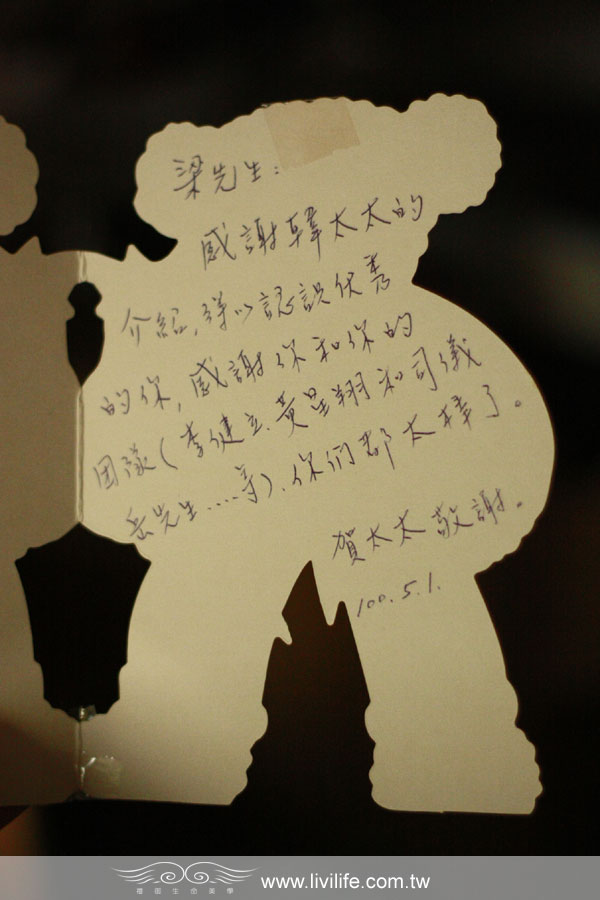 梁先生:
感謝韓太太的
介紹,得以認識優秀
的你,感謝你和你的
团隊(李健立、黃星翔和司儀
岳先生....等)、你們都太棒了。
賀太太敬謝。
100.5.1.
禮儀生命美學
www.livilife.com.tw